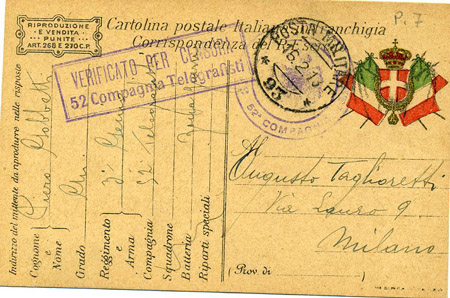 P. 7
RIPRODUZIONE
E VENDITA
PUNITE
ART. 268 E 270 C.P.
Cartolina postale Italiana in franchigia
Corrispondenza del
POSTA MILITARE
93
VERIFICATO PER CENSURA
52 Compagnia Telegrafisti
52ª COMPAGN
Indirizzo del mittente da riprodurre nelle risposte
Cognome e Nome
Piero
Grado
Reggimento e Arma
3° Genio
Compagnia
52 Telegrafisti
Squadrone
Batteria
Riparti speciali
Augusto Taglioretti
Via Lauro 9
Milano
(Prov. di
)